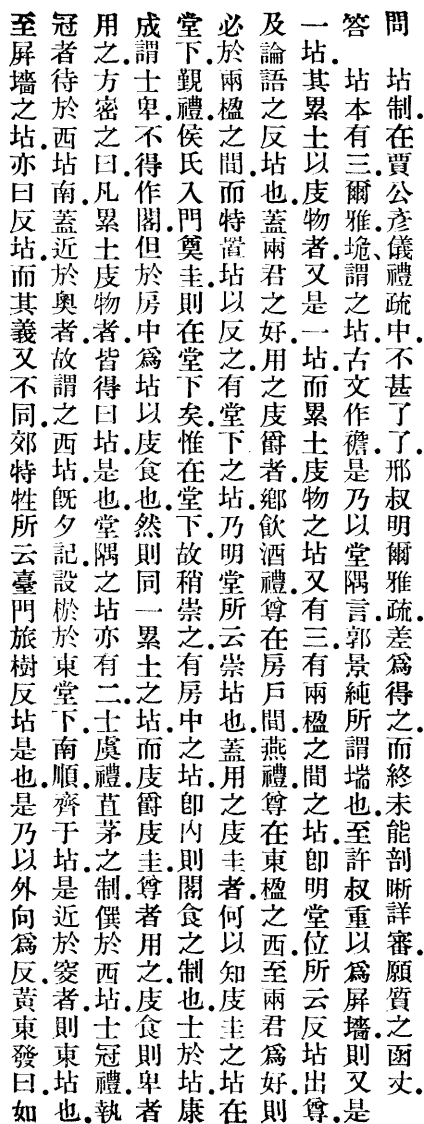 問 坫制在賈公彥儀禮疏中不甚了了邢叔明爾雅疏差爲得之而終未能剖晰詳審願質之函丈
答 坫本有三爾雅垝謂之坫古文作襜是乃以堂隅言郭景純所謂𡍲也至許叔重以爲屏墻則又是
一坫其累土以庋物者又是一坫而累土庋物之坫又有三有兩楹之間之坫卽明堂位所云反坫出尊
及論語之反坫也蓋兩君之好用之庋爵者鄉飲酒禮尊在房戶間燕禮尊在東楹之西至兩君爲好則
必於兩楹之間而特置坫以反之有堂下之坫乃明堂所云崇坫也蓋用之庋圭者何以知庋圭之坫在
堂下覲禮侯氏入門奠圭則在堂下矣惟在堂下故稍崇之有房中之坫卽內則閣食之制也士於坫康
成謂士卑不得作閣但於房中爲坫以庋食也然則同一累土之坫而庋爵庋圭尊者用之庋食則卑者
用之方密之曰凡累土庋物者皆得曰坫是也堂隅之坫亦有二士虞禮苴茅之制僎於西坫士冠禮執
冠者待於西坫南蓋近於奧者故謂之西坫旣夕記設棜於東堂下南順齊于坫是近於窔者則東坫也
至屏墻之坫亦曰反坫而其義又不同郊特牲所云臺門旅樹反坫是也是乃以外向爲反黃東發曰如